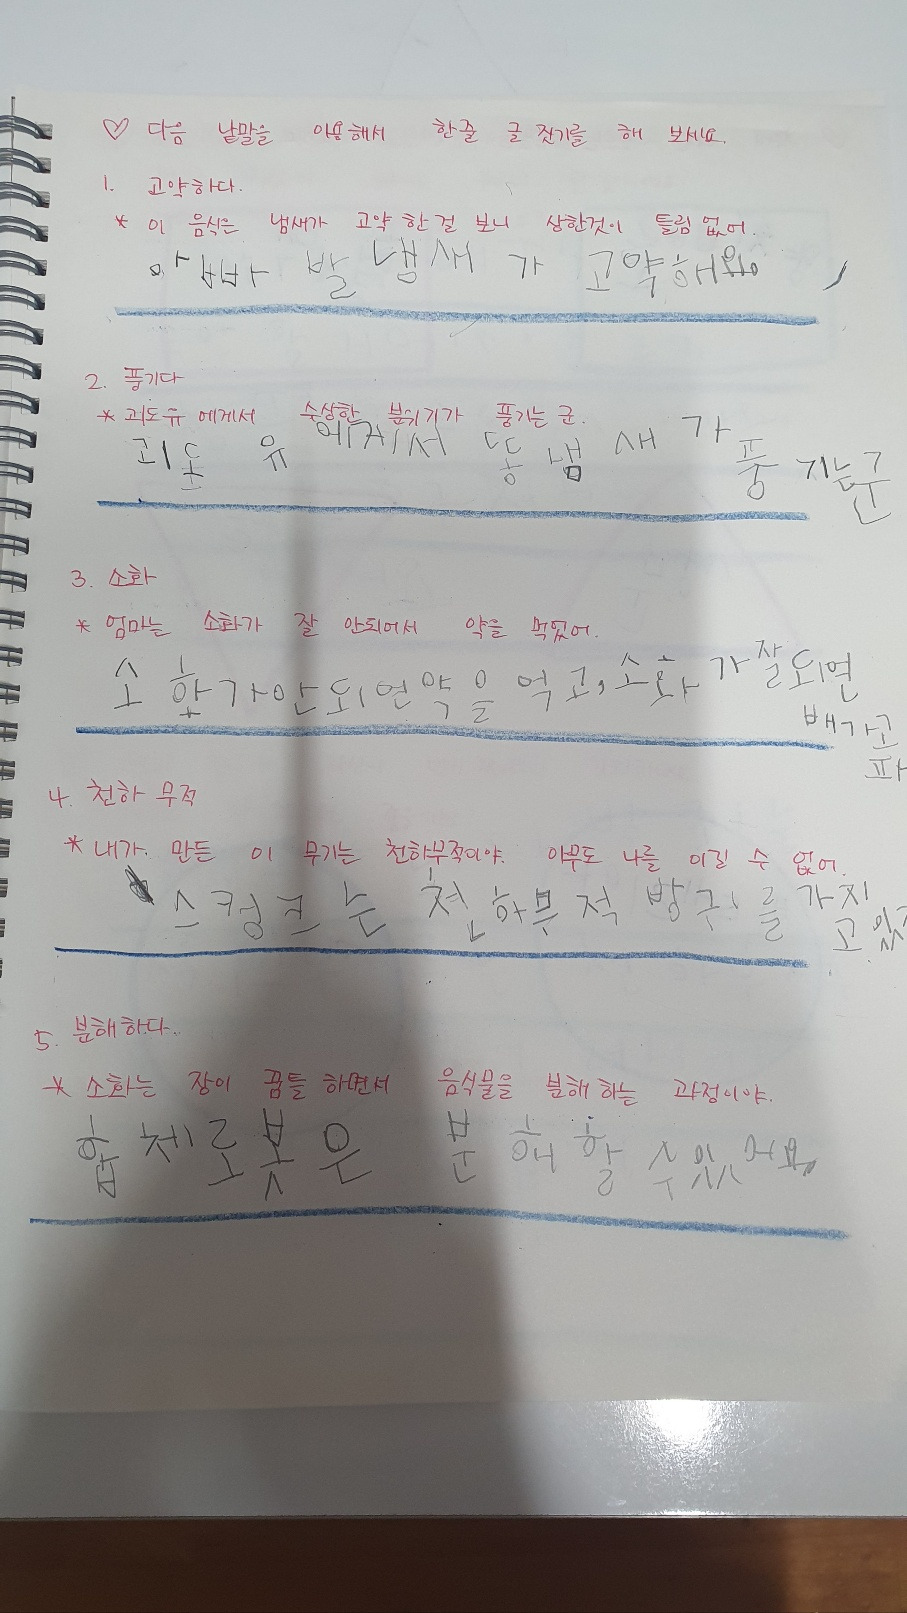 ♡ 다음 낱말을 이용해서 한줄 글 짓기를 해 보세요.
1. 고약하다.
* 이 음식은 냄새가 고약 한걸 보니 상한것이 틀림 없어.
아빠 발 냄새 가 고약해
2. 풍기다
* 괴도유 에게서 수상한 분위기가 풍기는 군.
괴도 유 에게서 똥 냄 새 가 풍 기는군
3. 소화
* 엄마는 소화가 잘 안되어서 약을 먹었어.
소 화 가 안 되 면 약 을 먹 고, 소 화 가 잘 되면
배가고
파
4. 천하 무적
* 내가 만든 이 무기는 천하무적이야. 아무도 나를 이길 수 없어.
스컹크 는 천 하무 적 방귀를 가지
고 있
5. 분해하다.
* 소화는 장이 꿈틀 하면서 음식물을 분해 하는 과정이야.
합 체로봇은 분 해 할 수있 어요